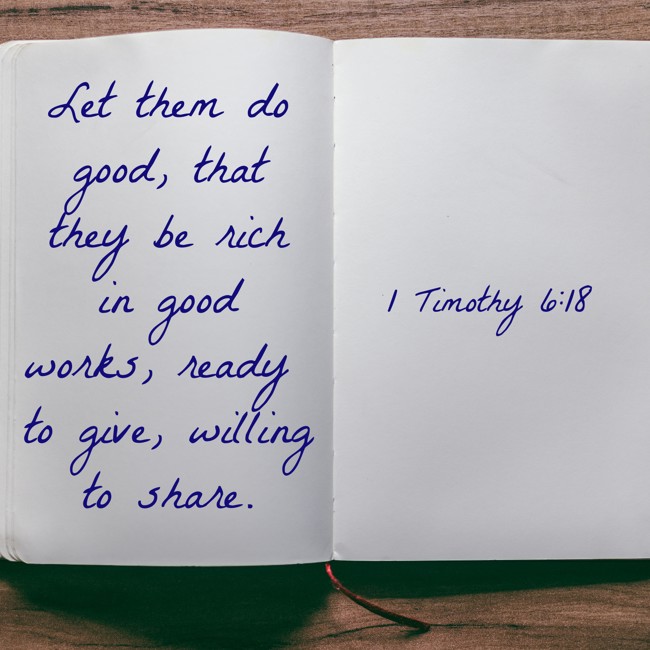 Let them do
good, that
they be rich
in good
works, ready
to give, willing
to share.
1 Timothy 6:18